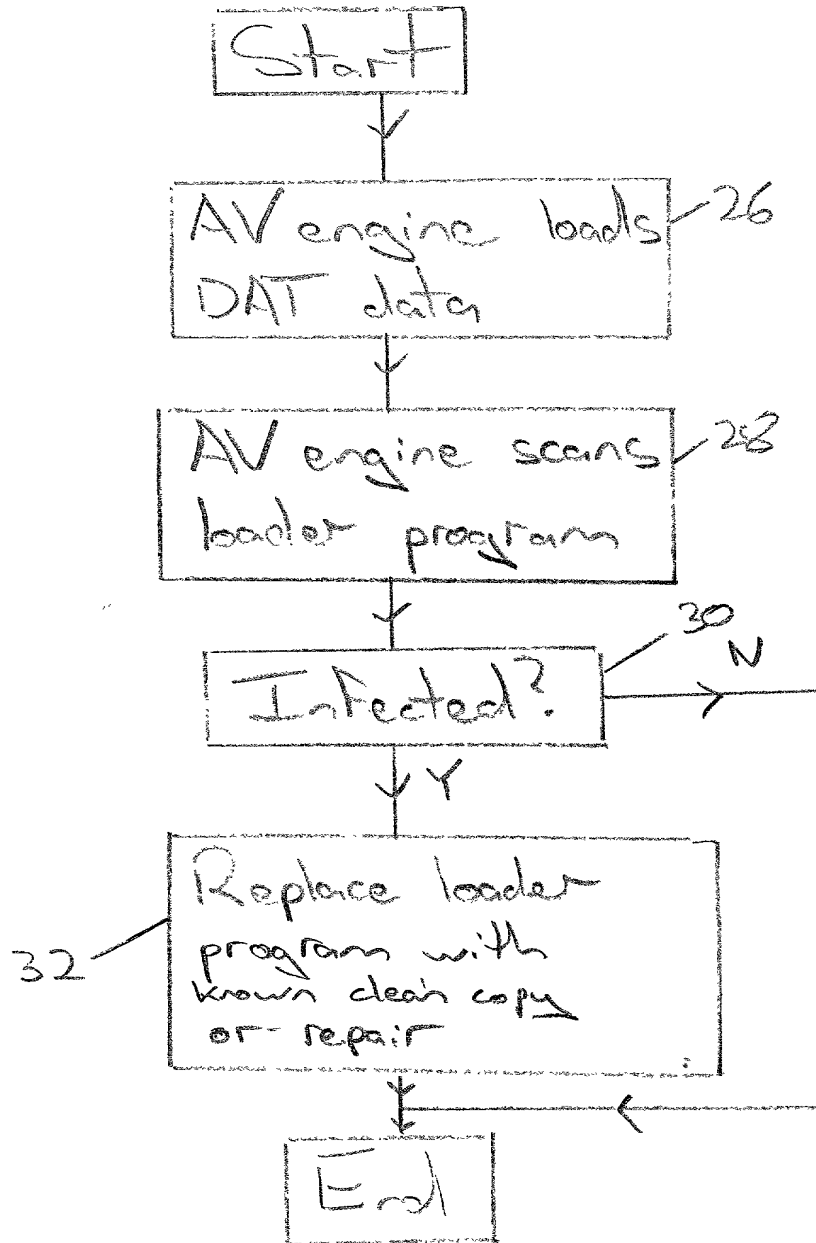 Start
AV engine loads
DAT data
26
AV engine scans
loader program
28
Infected?
30
N
Y
Replace loader
program with
known clean copy
or repair
32
End